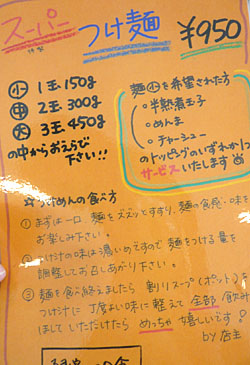 スーパー
特製
つけ麺
¥950
小 1玉 150g
中 2玉 300g
大 3玉 450g
の中からおえらび
下さい!!
麺小を希望された方
・半熟煮玉子
・めんま
・チャーシュー
のトッピングのいずれか1つ
サービスいたします
☆つけめんの食べ方
① まずは一口 麺をズズッとすすり、麺の食感・味を
お楽しみ下さい。
② つけ汁の味は濃いめですので 麺をつける量を
調整してお召しあがり下さい。
③ 麺を食べ終えましたら 割りスープ(ポット)を
つけ汁に丁度よい味に整えて全部飲み
ほして いただけたら めっちゃ 嬉しいです!
by 店主